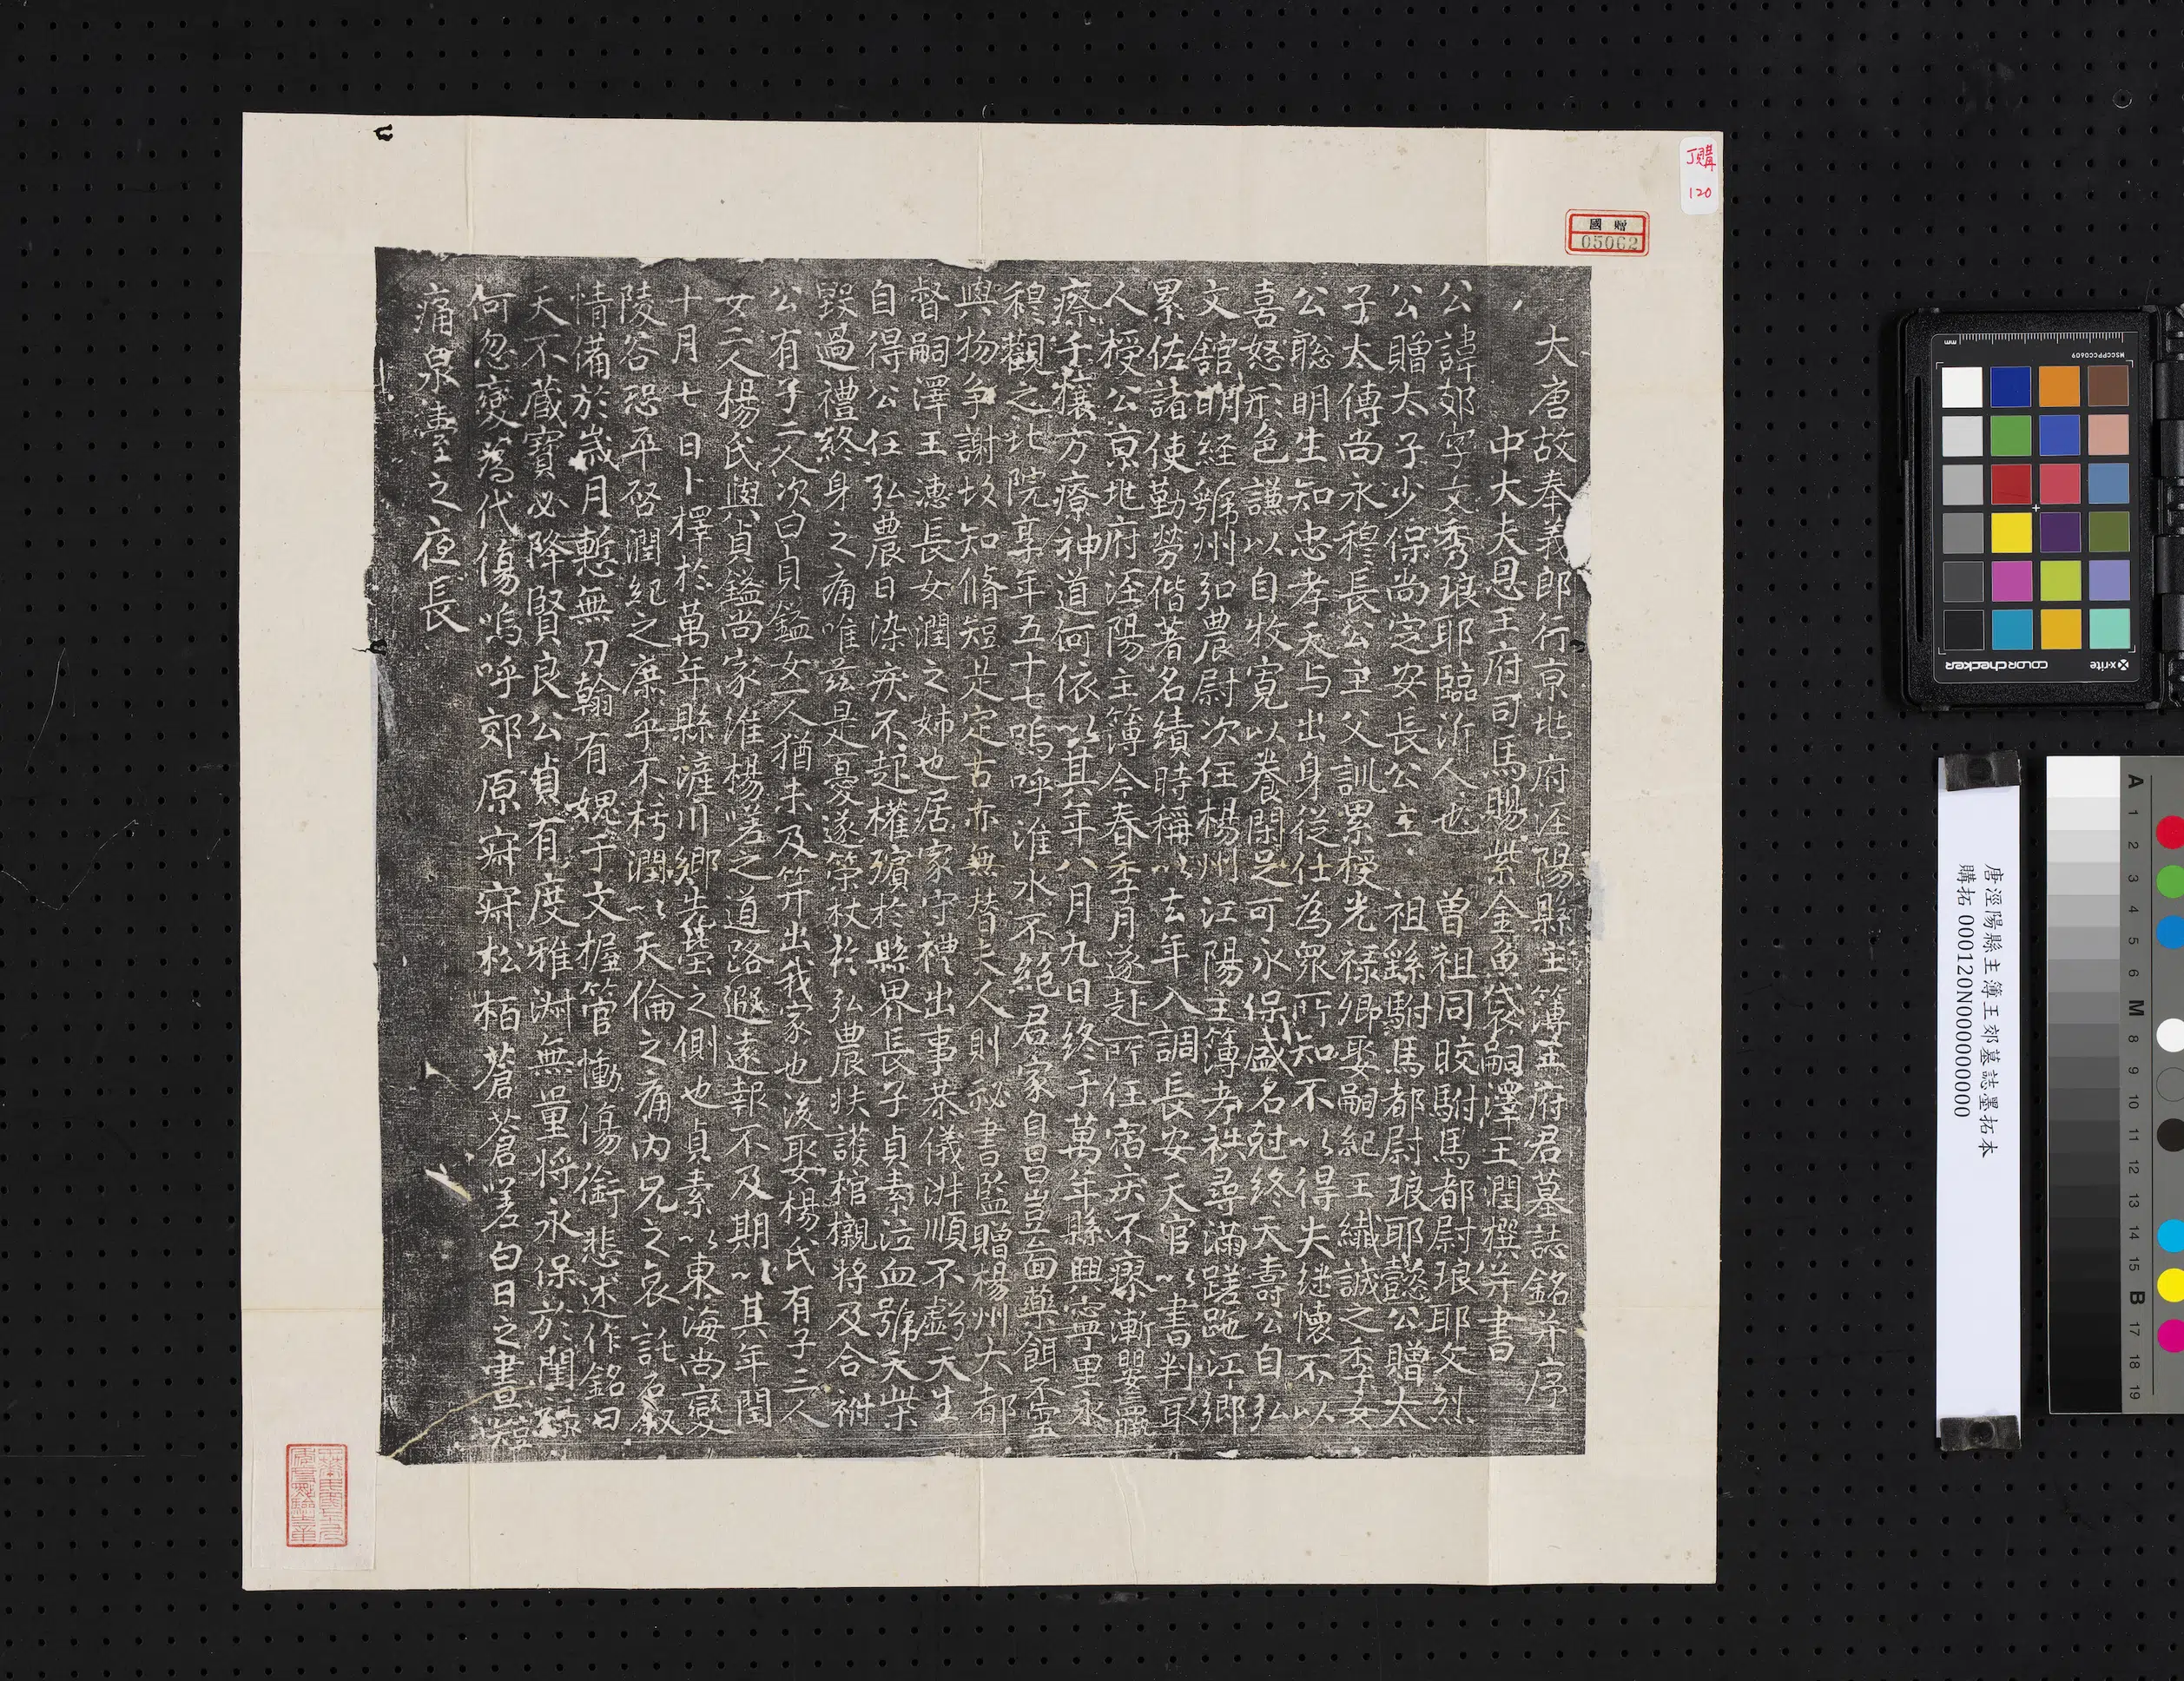 大唐故奉義郎行京地府涇陽縣主簿王府君墓誌銘并序
中大夫恩王府司馬賜紫金魚袋嗣澤王潤撰并書
公諱郊字文秀琅耶臨沂人也 曾祖同晈駙馬都尉琅耶文烈
公贈太子少保尚定安長公主 祖繇駙馬都尉琅耶懿公贈太
子太傅尚永穆長公主父訓累授光祿卿娶嗣紀王鐵誠之季女
公聡明生知忠孝天与出身從仕為眾所知不以得失継懷不以
喜怒形色謙以自牧寛以養閑足可永保盛名尅終天壽公自弘
文舘明経虢州弘農尉次任楊州江陽主簿考秩尋滿蹉跎江鄉
累佐諸使勤勞偕著名績時稱以去年入調長安天官以書判取
人授公京地府涇陽主簿今春季月遂赴所任宿疾不瘳漸嬰羸
瘵子禳方療神道何依以其年八月九日終于萬年縣興寧里永
穆觀之北院享年五十七嗚呼淮水不絕君家自昌豈啚藥餌不靈
與物爭謝故知脩短是定古亦無替夫人則祕書監贈楊州大都
督嗣澤王漶長女潤之姊也居家守禮出事恭儀淑順不虧天生
自得公任弘農日染疾不起權殯於縣界長子貞素泣血號天柴
毀過禮終身之痛唯茲是憂遂策杖於弘農扶護棺櫬將及合祔
公有子二人次曰貞鎰女一人猶未及笄出我家也後娶楊氏有子三人
女二人楊氏與貞鎰尚家維楊嗟之道路遐遠報不及期以其年閏
十月七日卜擇於萬年縣滻川鄉先塋之側也貞素以東海尚變
陵谷恐平啓潤紀之庶乎不朽潤以天倫之痛內兄之哀託石叙
情備於歲月慙無刀翰有媿于文握管慟傷銜悲述作銘曰
天不藏寶必降賢良公貞有度雅淑無量將永保於閨
何忽變為代傷嗚呼郊原寂寂松栢蒼蒼嗟白日之晝短
痛泉臺之夜長
丁購
120
國贈
05062
唐涇陽縣主簿王郊墓誌墨拓本
購拓 000120N000000000
colorchecker
x-rite
MSCCPPCC0609
mm
A 1 2 3 4 5 6 M 8 9 10 11 12 13 14 15 B 17 18 19